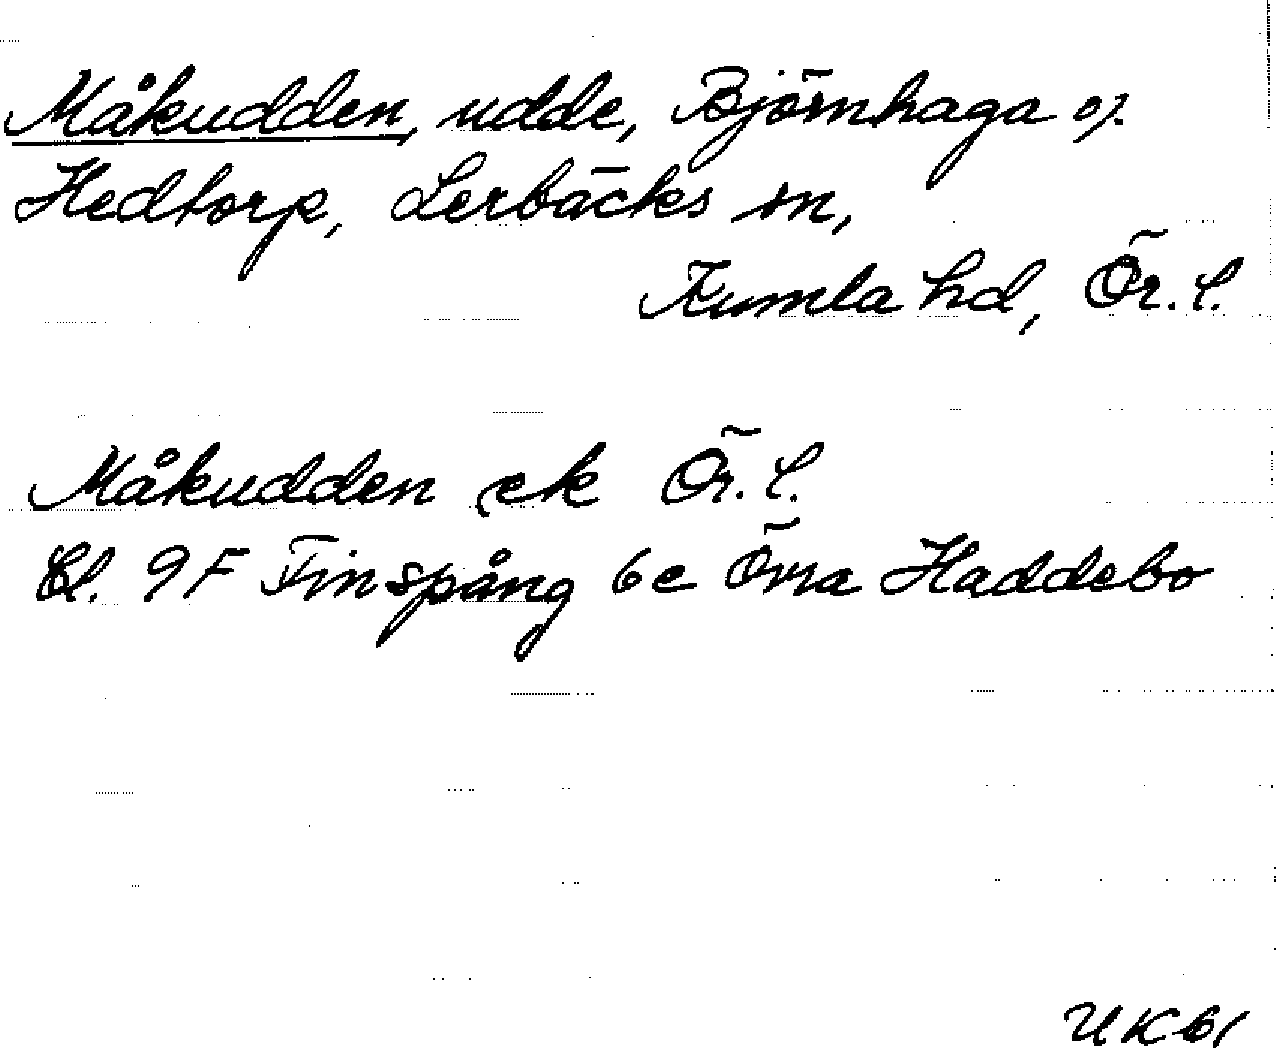 Måkudden, udde, Björnhaga o/.
Hedtorp, Lerbäcks sn,
Kumla hd, Ör. l.
Måkudden ek Ör. l.
Bl. 9F Finspång 6e Övra Haddebo
UK61